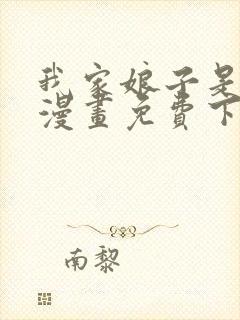 我家娘子是
漫畫免費下
南黎